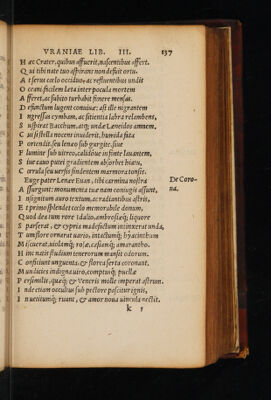 VRANIAE LIB. III. 137
H æc Crater, quibus affuerit, nascentibus affert.
Q ui tibi nate tuo aspirans non defuit ortu.
A t seruat cœlo occiduo, ac refluentibus undit
O ceani ficilem læta inter pocula mortem
A fferet, ac subito turbabit funere mensas.
D efunctum lugent conuiuæ: ast ille nigrantem
I ngressus cymbam, ac sitientia labra relambens,
S uspirat Bacchum, atq; undæ Lenæidos amnem.
C ui si stella nocens inuiderit, humida fata
P ortendit. seu lenta sub gurgite, siue
F lumine sub uitreo, calidoue infonte lauantem,
S iue euuo putei gradientem absorbet hiatu,
C ærula seu uersis findentem marmora tonsis.
Euge pater Lenæe Euan, tibi carmina nostra
A ssurgunt: monumenta tuæ nam coniugis assunt,
I nsignitum auro textum, ac radiantibus astris,
E t primo splendet cœlo memorabile donum,
Quod dea tum rore Idalio, ambrosiæq; liquore
S parserat, & cypria madefactum intinxerat unda,
T um flore ornarat uario, intactumq; hyacinthum
M iscuerat, uiolamq; rosæ, casiamq; amarantho.
H inc natis studium tenerorum mansit odorum.
C onficiunt unguenta, & florea serta coronant.
M undicies indigna uiro, comptuq; puellæ
P ersimilis, quæq; & Veneris molle imperat astrum.
I nde etiam occultus sub pectore pascitur ignis,
I n uetitumq; ruunt, & amor noua uincula nectit.
De Coro-
na.
k i